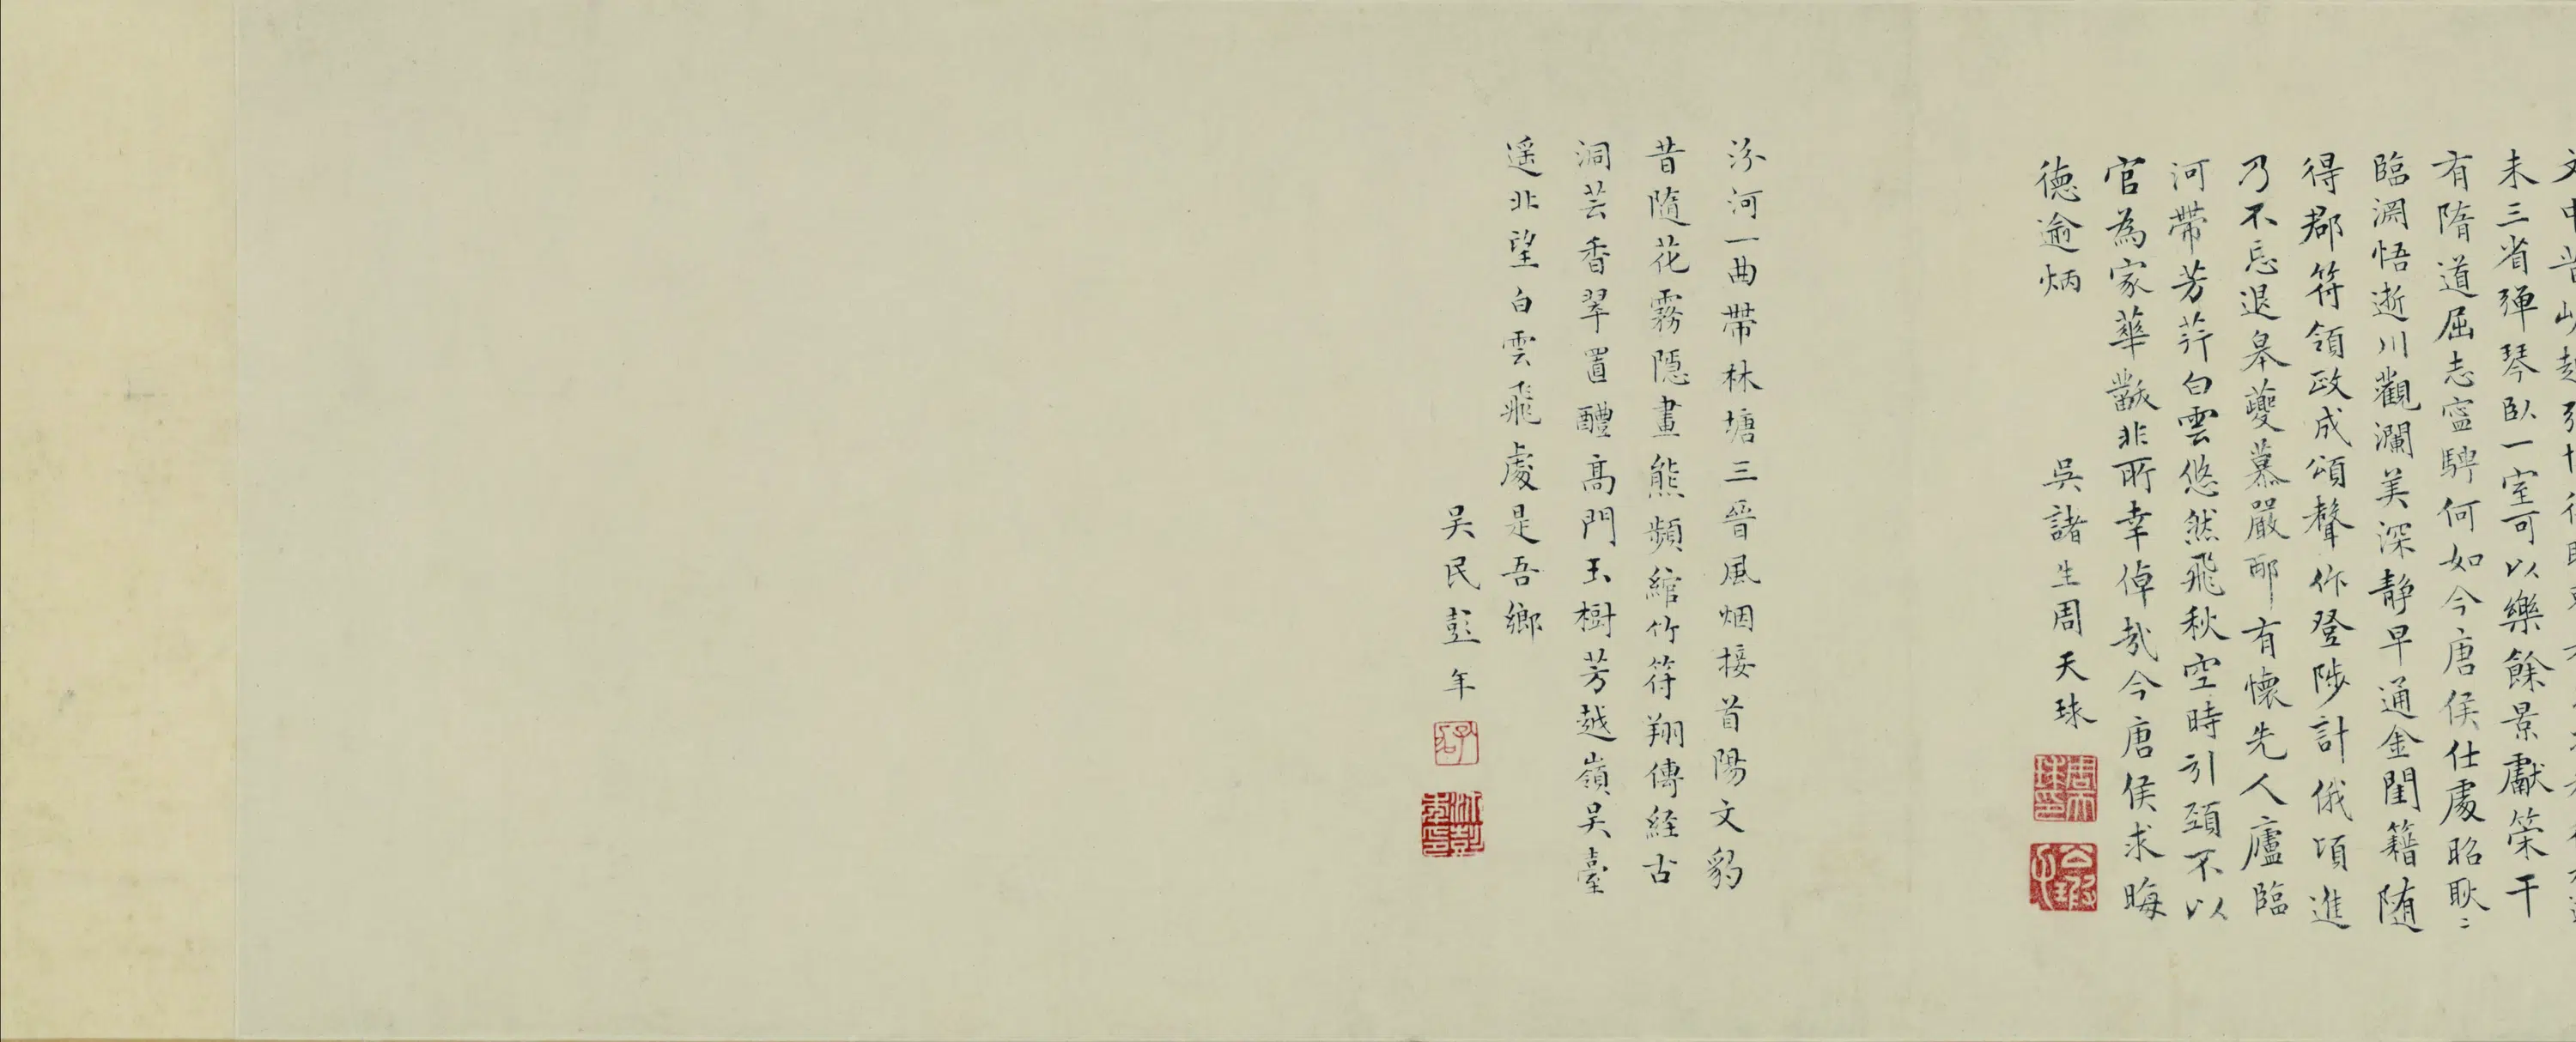 未三省彈琴臥一室可以樂餘景獻策干
有隋道屈志寧騁何如今唐侯仕處昭耿〻
臨淵悟逝川觀瀾美深靜早通金閨籍随
得郡符領政成頌聲作登陟計俄頃進
乃不忘退皋夔慕嚴邴有懷先人廬臨
河帶芳荇白雲悠然飛秋空時引頸不以
官為家華黻非所幸倬哉今唐侯求晦
德逾炳
吳諸生周天球
汾河一曲帶林塘三晉風烟接首陽文豹
昔隨花霧隱畫熊頻綰竹符翔傳經古
洞芸香翠置醴高門玉樹芳越嶺吴臺
遥北望白雲飛處是吾鄉
吴民彭年